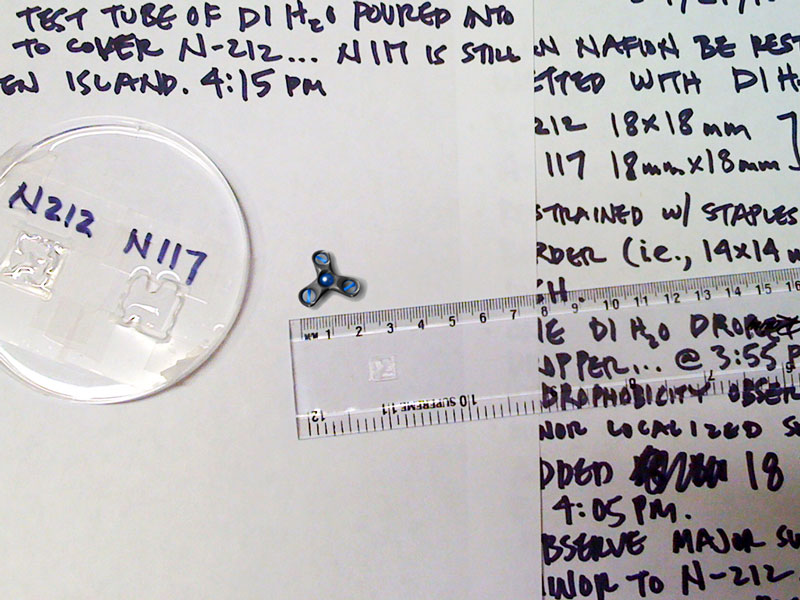 TEST TUBE OF DI H2O POURED INTO
TO COVER N-212... N117 IS STILL
EN ISLAND. 4:15 PM
N212
N117
MM 1 2 3 4 5 6 7 8 9 10 11 12 13 14 15 16
12 11 10 SUPREME
N NAFION BE REST
ETTED WITH DI H
212 18X18 mm
117 18mm X 18mm
STRAINED W/ STAPLES
RDER (ie., 14X14 m
CH.
NE DI H2O DROP
OPPER... @ 3:55 P
DROPHOBICITY OBSER
NOR LOCALIZED SW
DDED 18
4:05 PM.
BSERVE MAJOR SW
INOR TO N-212